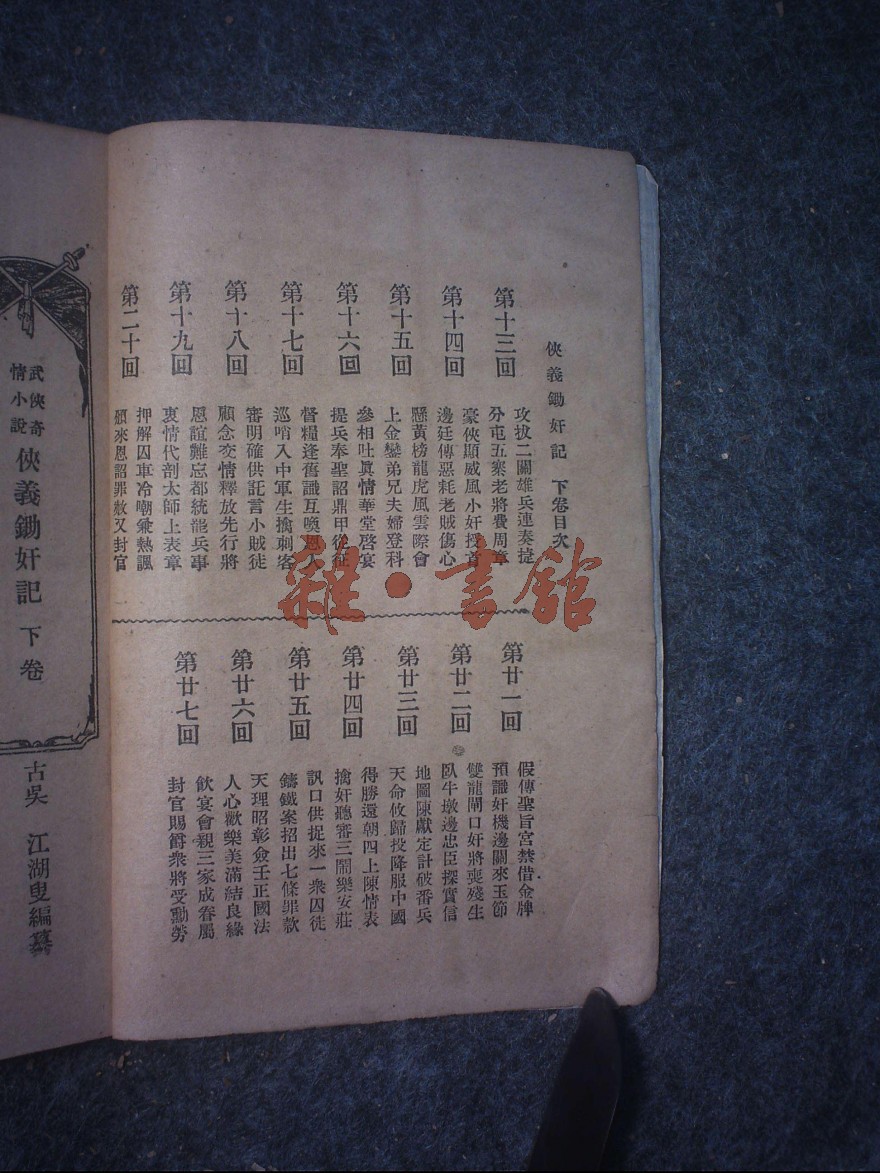 俠義鋤奸記 下卷目次
第十三回
攻拔二關雄兵連奏捷
分屯五寨老將費周章
第十四回
豪俠顯威風小奸授首
邊廷傳惡耗老賊傷心
第十五回
懸黃榜龍虎風雲際會
上金鑾弟兄夫婦登科
第十六回
參相吐眞情華堂啓宴
提兵奉聖詔鼎甲從征
第十七回
督糧逢舊識互喚恩人
巡哨入中軍生擒刺客
第十八回
審明確供託言小賊徒
顧念交情釋放先行將
第十九回
恩誼難忘都統龍兵事
衷情代剖太師上表章
第二十回
押解囚車冷嘲兼熱諷
頒來恩詔罪赦又封官
第廿一回
假傳聖旨宮禁借金牌
預識奸機邊關來玉節
第廿二回
雙龍閘口奸將喪殘生
臥牛墩邊忠臣探實信
第廿三回
地圖陳獻定計破番兵
天命攸歸投降服中國
第廿四回
得勝還朝四上陳情表
擒奸聽審三鬧樂安莊
第廿五回
訊口供捉來一衆囚徒
鑄鐵案招出七條罪款
第廿六回
天理昭彰僉壬正國法
人心歡樂美滿結良緣
第廿七回
飲宴會親三家成眷屬
封官賜爵衆將受勳勞
一
武俠奇情小說
俠義鋤奸記 下卷
古吳 江湖叟編纂
雜·書館